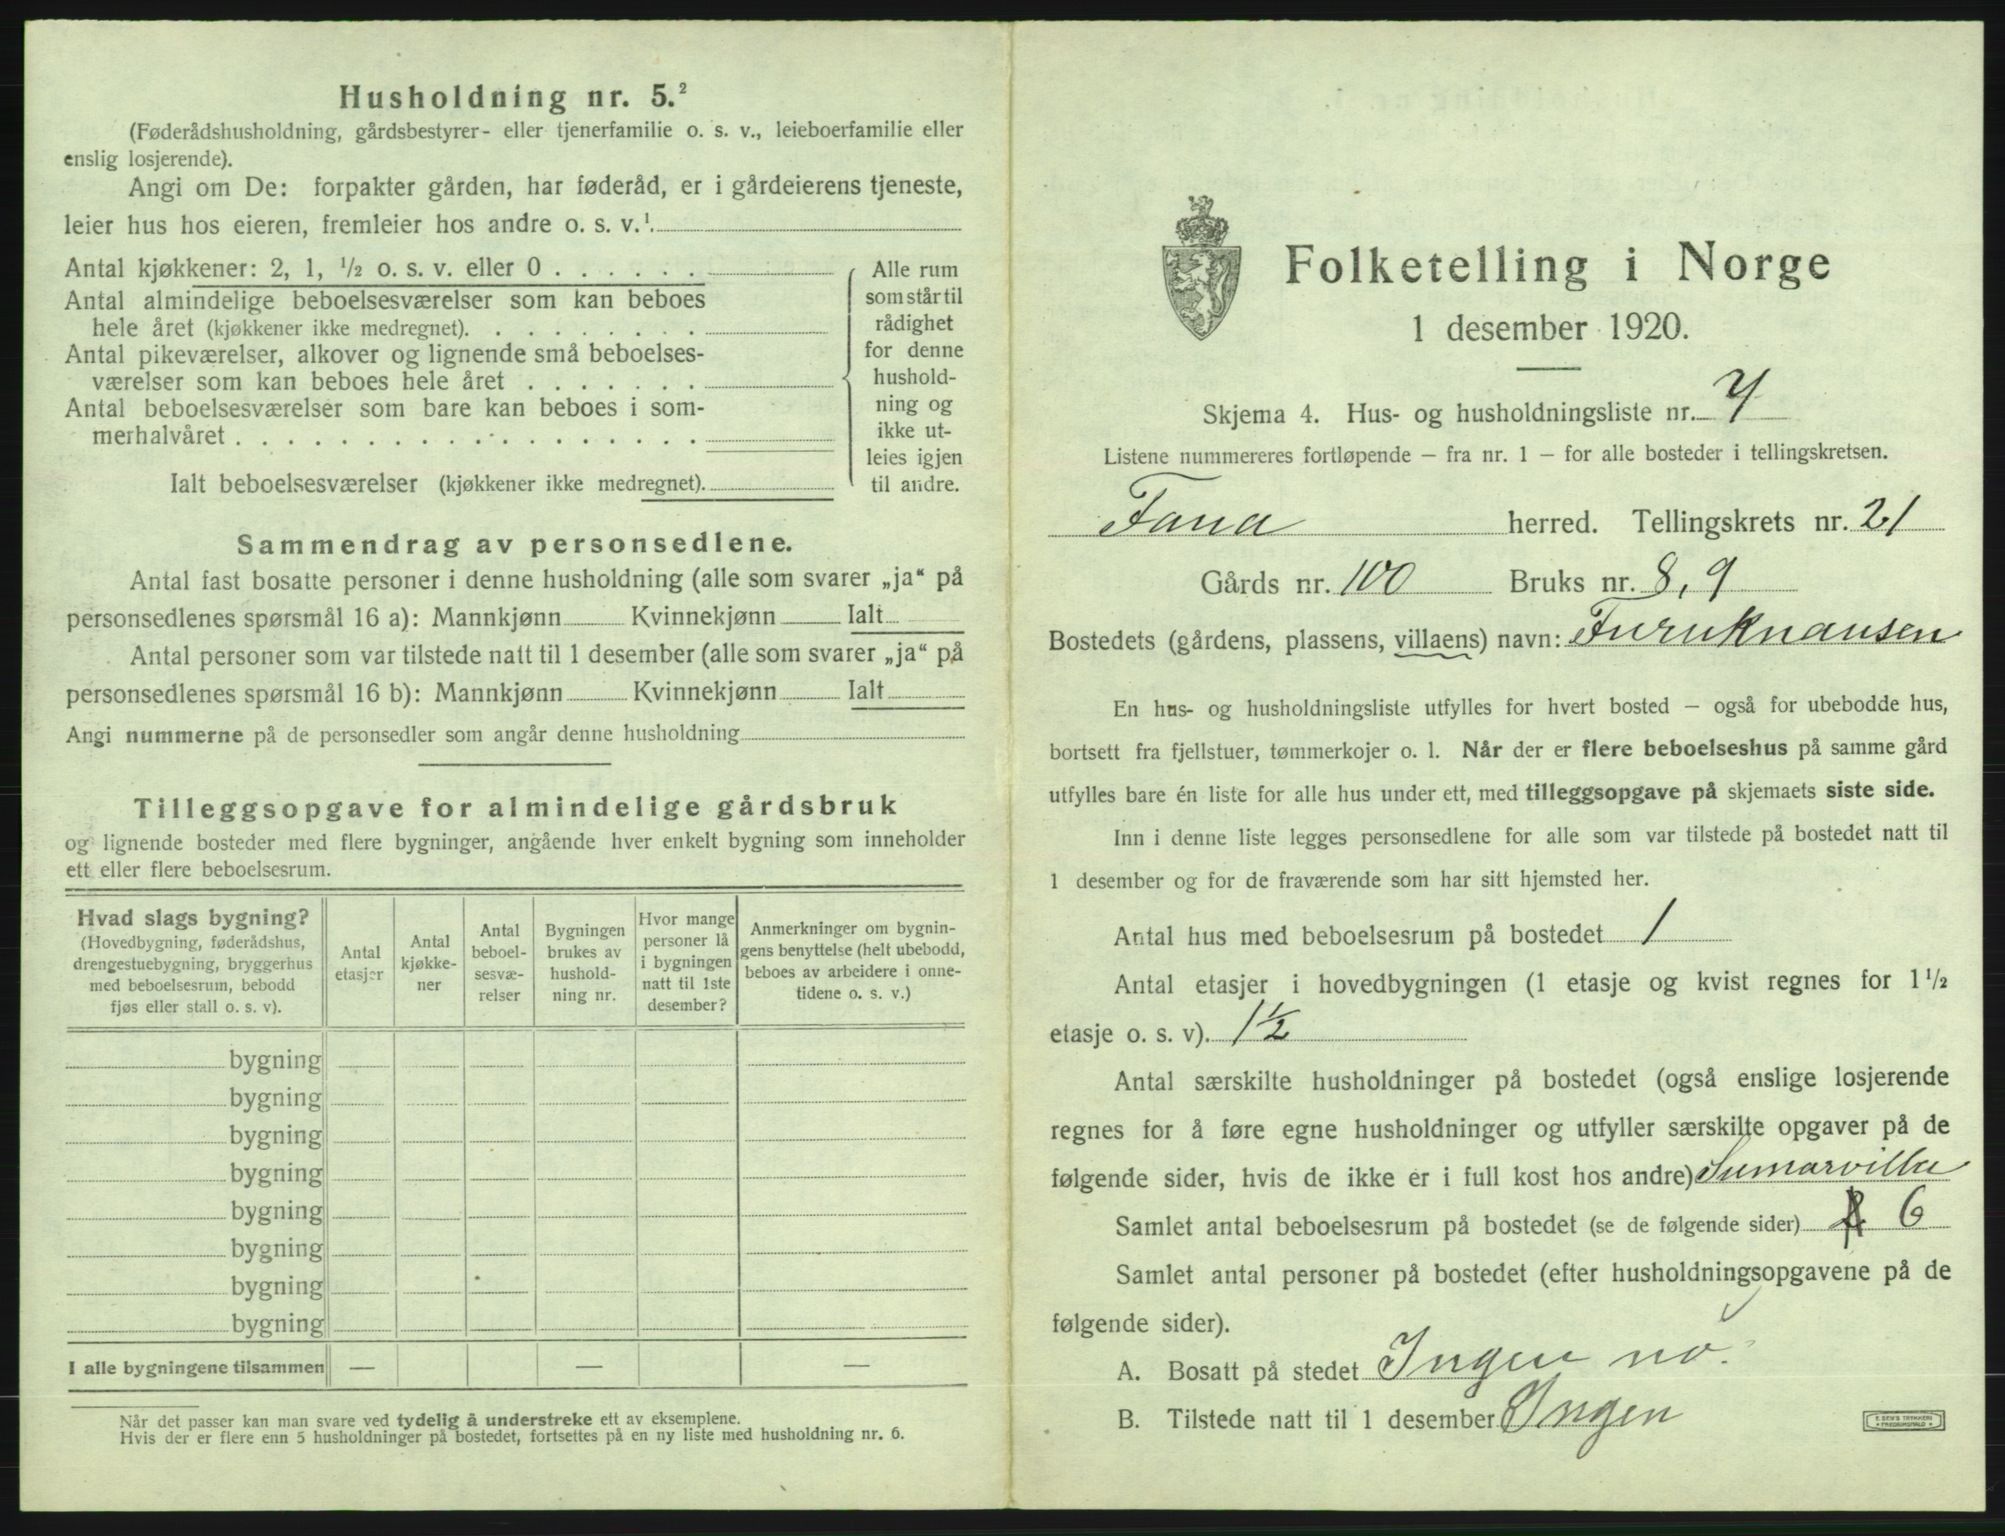 Husholdning nr. 5.²
(Føderådshusholdning, gårdsbestyrer- eller tjenerfamilie o. s. v., leieboerfamilie eller
enslig losjerende).
Angi om De: forpakter gården, har føderåd, er i gårdeierens tjeneste,
leier hus hos eieren, fremleier hos andre o. s. v.¹.
Antal kjøkkener: 2, 1, ½ o. s. v. eller 0 . . . . . .
Antal almindelige beboelsesværelser som kan beboes
hele året (kjøkkener ikke medregnet). . . . . . . . .
Antal pikeværelser, alkover og lignende små beboelses-
værelser som kan beboes hele året . . . . . . .
Antal beboelsesværelser som bare kan beboes i som-
merhalvåret . . . . . . . . . . . . . . . . . .
Ialt beboelsesværelser (kjøkkener ikke medregnet).
Alle rum
som står til
rådighet
for denne
hushold-
ning og
ikke ut-
leies igjen
til andre.
Sammendrag av personsedlene.
Antal fast bosatte personer i denne husholdning (alle som svarer „ja“ på
personsedlenes spørsmål 16 a): Mannkjønn Kvinnekjønn Ialt
Antal personer som var tilstede natt til 1 desember (alle som svarer „ja“ på
personsedlenes spørsmål 16 b): Mannkjønn Kvinnekjønn Ialt
Angi nummerne på de personsedler som angår denne husholdning
Tilleggsopgave for almindelige gårdsbruk
og lignende bosteder med flere bygninger, angående hver enkelt bygning som inneholder
ett eller flere beboelsesrum.
Hvad slags bygning?
(Hovedbygning, føderådshus,
drengestuebygning, bryggerhus
med beboelsesrum, bebodd
fjøs eller stall o. s. v).
Antal
etasjer
Antal
kjøkke-
ner
Antal
beboel-
sesvæ-
relser
Bygningen
brukes av
hushold-
ning nr.
Hvor mange
personer lå
i bygningen
natt til 1ste
desember?
Anmerkninger om bygnin-
gens benyttelse (helt ubebodd,
beboes av arbeidere i onne-
tidene o. s. v.)
bygning
bygning
bygning
bygning
bygning
bygning
bygning
bygning
I alle bygningene tilsammen — — —
Når det passer kan man svare ved tydelig å understreke ett av eksemplene.
Hvis der er flere enn 5 husholdninger på bostedet, fortsettes på en ny liste med husholdning nr. 6.
Folketelling i Norge
1 desember 1920.
Skjema 4. Hus- og husholdningsliste nr. 7
Listene nummereres fortløpende – fra nr. 1 – for alle bosteder i tellingskretsen.
Fana herred. Tellingskrets nr. 21
Gårds nr. 100 Bruks nr. 8, 9
Bostedets (gårdens, plassens, villaens) navn: Furuknausen
En hus- og husholdningsliste utfylles for hvert bosted – også for ubebodde hus,
bortsett fra fjellstuer, tømmerkojer o. l. Når der er flere beboelseshus på samme gård
utfylles bare én liste for alle hus under ett, med tilleggsopgave på skjemaets siste side.
Inn i denne liste legges personsedlene for alle som var tilstede på bostedet natt til
1 desember og for de fraværende som har sitt hjemsted her.
Antal hus med beboelsesrum på bostedet 1
Antal etasjer i hovedbygningen (1 etasje og kvist regnes for 1½
etasje o. s. v). 1½
Antal særskilte husholdninger på bostedet (også enslige losjerende
regnes for å føre egne husholdninger og utfyller særskilte opgaver på de
følgende sider, hvis de ikke er i full kost hos andre) Sumarvilla
Samlet antal beboelsesrum på bostedet (se de følgende sider) 6
Samlet antal personer på bostedet (efter husholdningsopgavene på de
følgende sider).
A. Bosatt på stedet Ingen no.
B. Tilstede natt til 1 desember Ingen